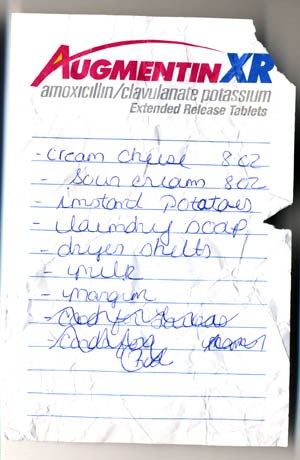 AUGMENTIN XR
amoxicillin/clavulanate potassium
Extended Release Tablets
- cream cheese 8 oz
- sour cream 8 oz
- instant potatoes
- laundry soap
- dryer shelts
- milk
- margin